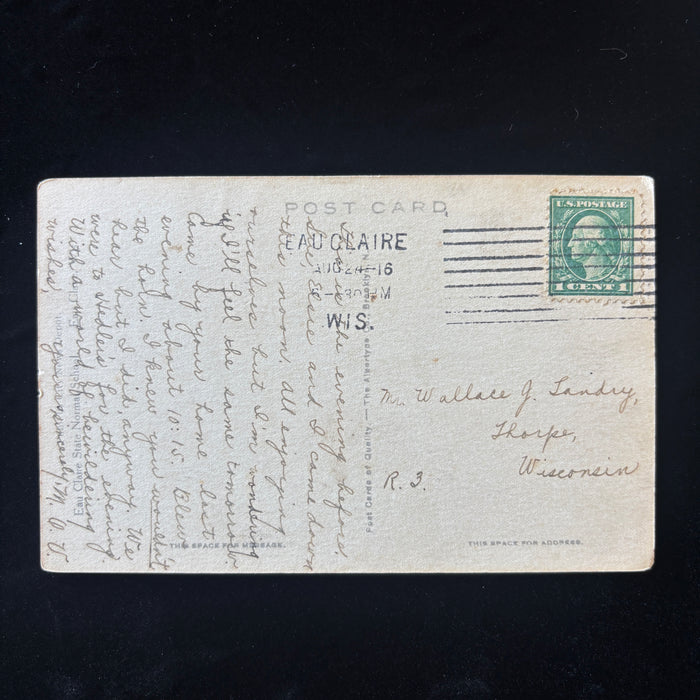 POST CARD
EAU CLAIRE
AUG 24
16
WIS.
U.S. POSTAGE
1 CENT 1
the evening before.
Elsie and I came down
this noon. all enjoying
ourselves but I'm wondering
if I'll feel the same tomorrow.
Came by your home last
evening about 10:15. Blew
the horn. I knew you wouldn't
hear but I did, anyway. We
were to for the evening.
With a world of bewildering
wishes,
Yours sincerely M. O. V.
Eau Clare State Normal
Post Cards of Quality. — The Albertype Co., Brooklyn, N.
Mr. Wallace J. Landry,
Thorpe,
Wisconsin
R. 3.
THIS SPACE FOR MESSAGE.
THIS SPACE FOR ADDRESS.